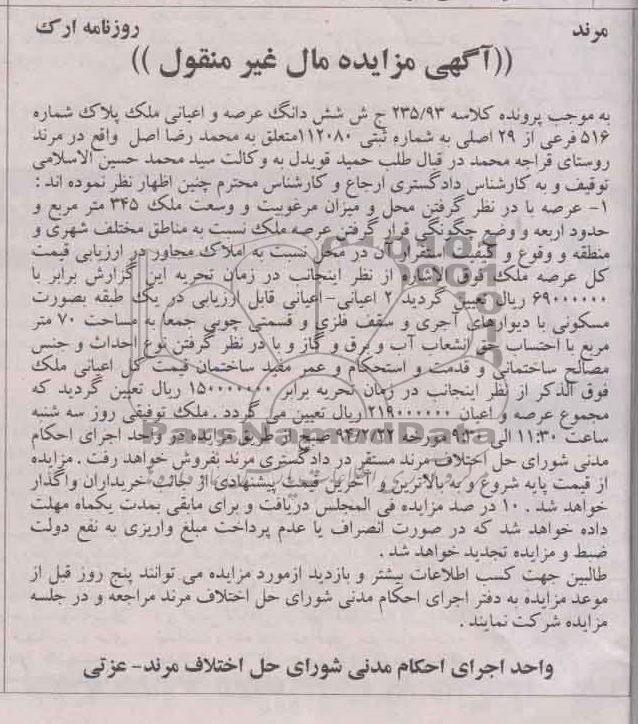 مرند
روزنامه ارک
((آگهی مزایده مال غیر منقول ))
به موجب پرونده کلاسه ۲۳۵/۹۳ ج ش شش دانگ عرصه و اعیانی ملک پلاک شماره
۵۱۶ فرعی از ۲۹ اصلی به شماره ثبتی ۱۱۲۰۸۰متعلق به محمد رضا اصل واقع در مرند
روستای قراجه محمد در قبال طلب حمید قویدل به وکالت سید محمد حسین الاسلامی
توقیف و به کارشناس دادگستری ارجاع و کارشناس محترم چنین اظهار نظر نموده اند :
۱- عرصه با در نظر گرفتن محل و میزان مرغوبیت و وسعت ملک ۳۴۵ متر مربع و
حدود اربعه و وضع چگونگی قرار گرفتن عرصه ملک نسبت به مناطق مختلف شهری و
منطقه و وقوع و کیفیت استقرار آن در محل نسبت به املاک مجاور در ارزیابی قیمت
کل عرصه ملک فوق الاشاره از نظر اینجانب در زمان تحریه این گزارش برابر با
۶۹۰۰۰۰۰۰ ریال تعیین گردید ۲ اعیانی-اعیانی قابل ارزیابی در یک طبقه بصورت
مسکونی با دیوارهای آجری و سقف فلزی و قسمتی چوبی جمعا به مساحت ۷۰ متر
مربع با احتساب حق انشعاب آب و برق و گاز و با در نظر گرفتن نوع احداث و جنس
مصالح ساختمانی و قدمت و استحکام و عمر مفید ساختمان قیمت کل اعیانی ملک
فوق الذکر از نظر اینجانب در زمان تحریه برابر ۱۵۰۰۰۰۰۰۰ ریال تعیین گردید که
مجموع عرصه و اعیان ۲۱۹۰۰۰۰۰۰ ریال تعیین می گردد . ملک توقیفی روز سه شنبه
ساعت ۱۱:۳۰ الی ۹:۳۰ مورخه ۹۴/۲/۲۲ صبح از طریق مزایده در واحد اجرای احکام
مدنی شورای حل اختلاف مرند مستقر در دادگستری مرند بفروش خواهد رفت . مزایده
از قیمت پایه شروع و به بالاترین و آخرین قیمت پیشنهادی از جانب خریداران واگذار
خواهد شد . ۱۰ در صد مزایده فی المجلس دریافت و برای مابقی بمدت یکماه مهلت
داده خواهد شد که در صورت انصراف یا عدم پرداخت مبلغ واریزی به نفع دولت
ضبط و مزایده تجدید خواهد شد .
طالبین جهت کسب اطلاعات بیشتر و بازدید ازمورد مزایده می توانند پنج روز قبل از
موعد مزایده به دفتر اجرای احکام مدنی شورای حل اختلاف مرند مراجعه و در جلسه
مزایده شرکت نمایند .
واحد اجرای احکام مدنی شورای حل اختلاف مرند- عزتی
ParsNamadData